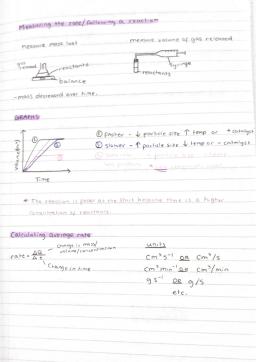 Measuring the rate/following a reaction
measure mass lost
measure volume of gas released
gas
reactants
balance
syringe
reactants
- mass decreased over time.
GRAPHS
① faster - ↓ particle size ↑ temp or + catalyst
② slower - ↑ particle size ↓ temp or - catalyst
Time
* The reaction is faster at the start because there is a higher
concentration of reactants.
Calculating average rate
rate =
change in mass/
volume/concentration
change in time
units
cm³s⁻¹ OR cm³/s
cm³min⁻¹ OR cm³/min
gs⁻¹ OR g/s
etc.